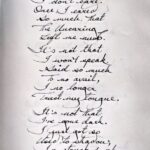 I don't care.
Once I cared
So much, that
the Uncaring
Left me nude.
It's not that
I won't speak
Said so much
to no avail
I no longer
Trust my tongue.
It's not that
I've gone dark.
I just got so
Used to shadows,